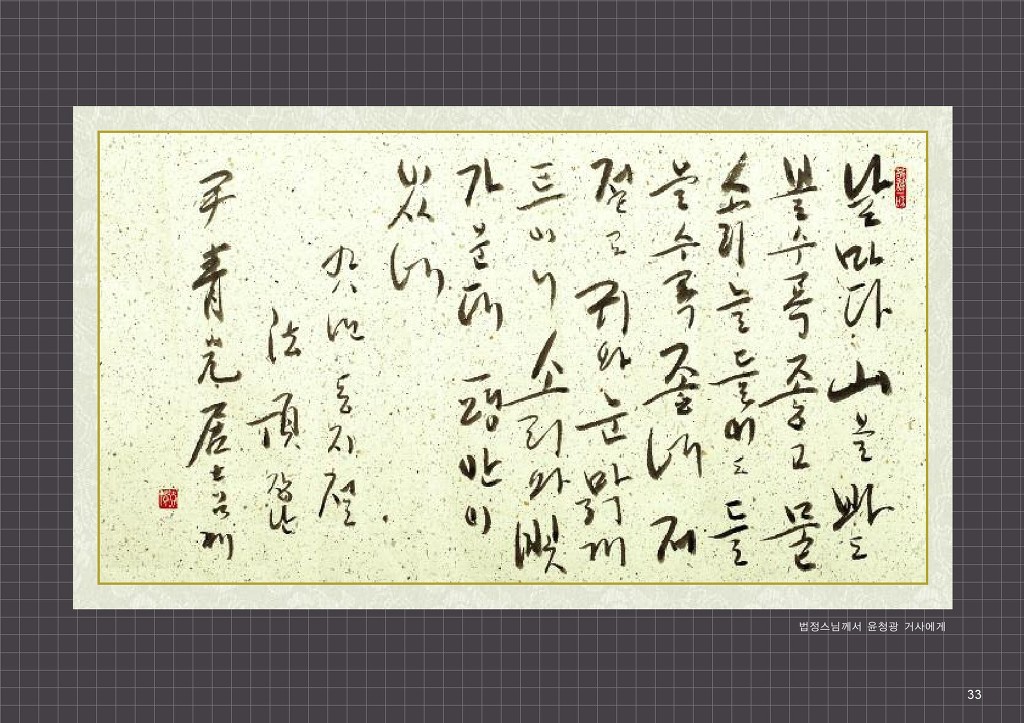 날마다 山을 봐도
볼수록 좋고 물
소리 늘 들어도 들
을수록 좋네 저
절로 귀와 눈 맑게
트이니 소리와 빛
가운데 평안이
있네
년 동지절
法頂 장난
尹青光居士님께
법정스님께서 윤청광 거사에게
33